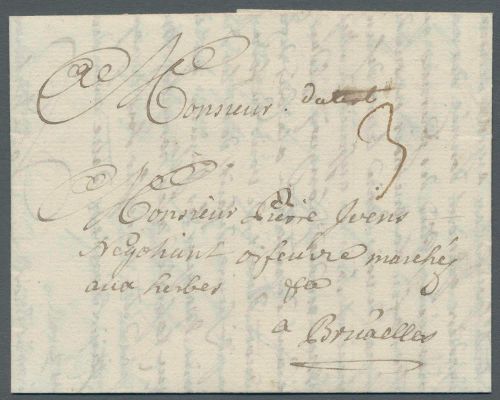 A Monsieur
3
A Monsieur
Monsieur Pierre Ivens
Negotiant orfeuvre marchéz
aux herbes &a
a Bruxelles